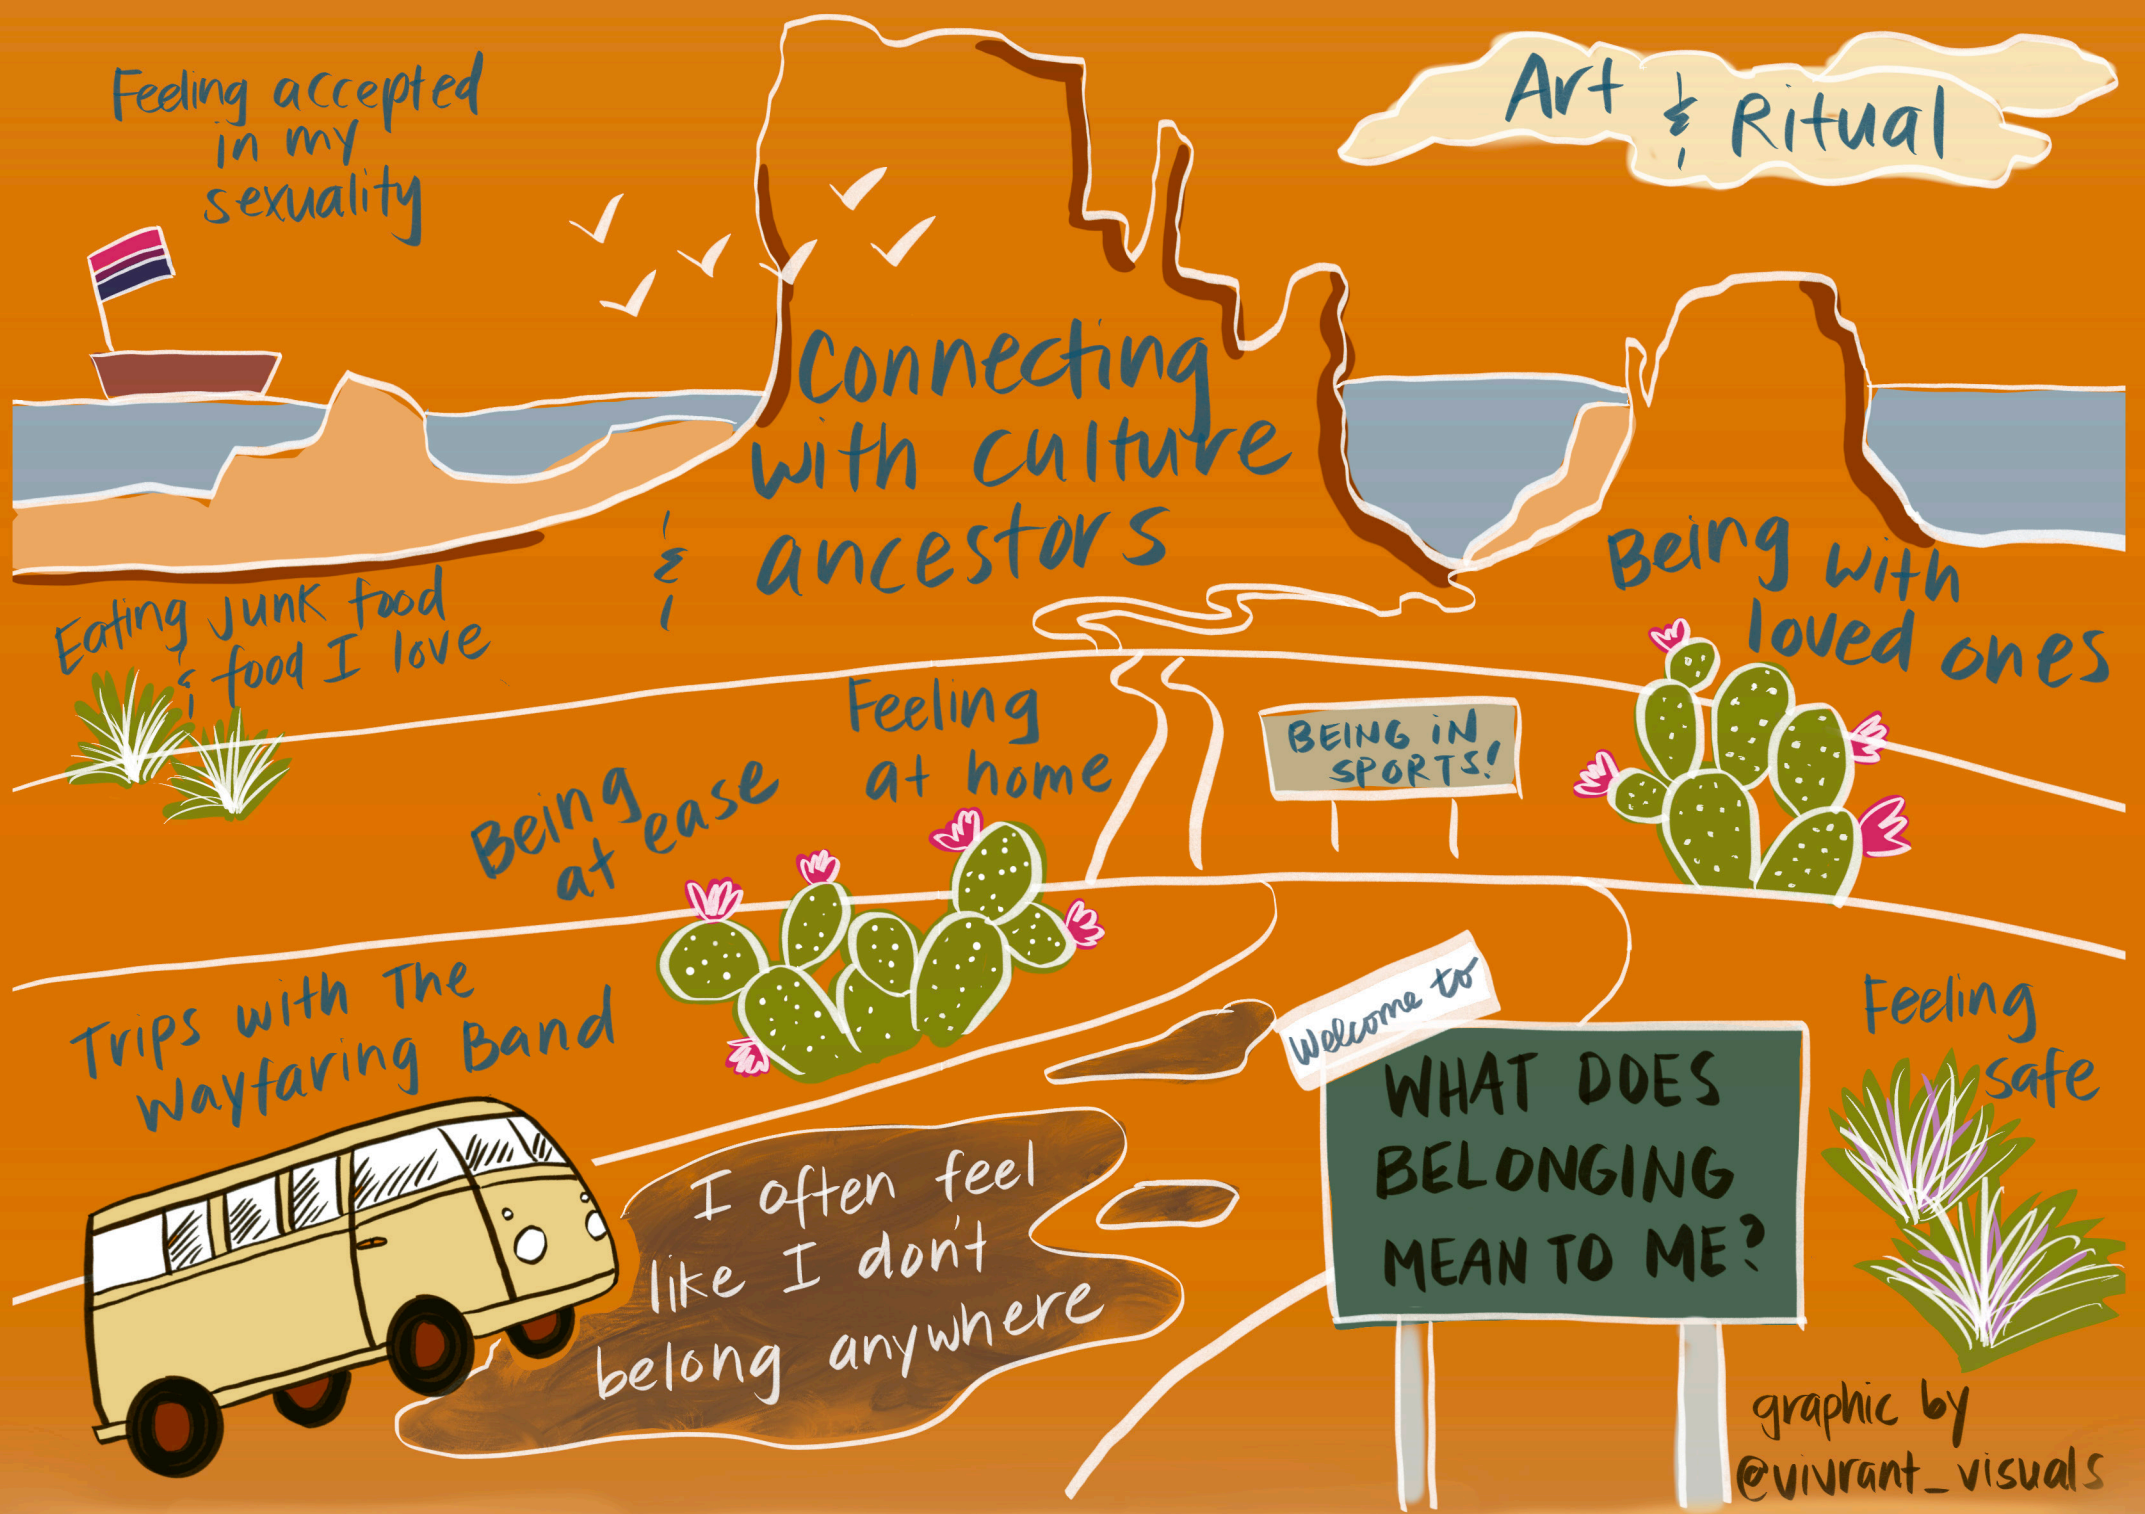 Feeling accepted
in my
sexuality
Art & Ritual
Connecting
with culture
& ancestors
Being with
loved ones
Eating junk food
& food I love
Feeling
at home
BEING IN
SPORTS!
Being
at ease
Trips with The
Wayfaring Band
Welcome to
WHAT DOES
BELONGING
MEAN TO ME?
Feeling
safe
I often feel
like I don't
belong anywhere
graphic by
@vivrant_visuals